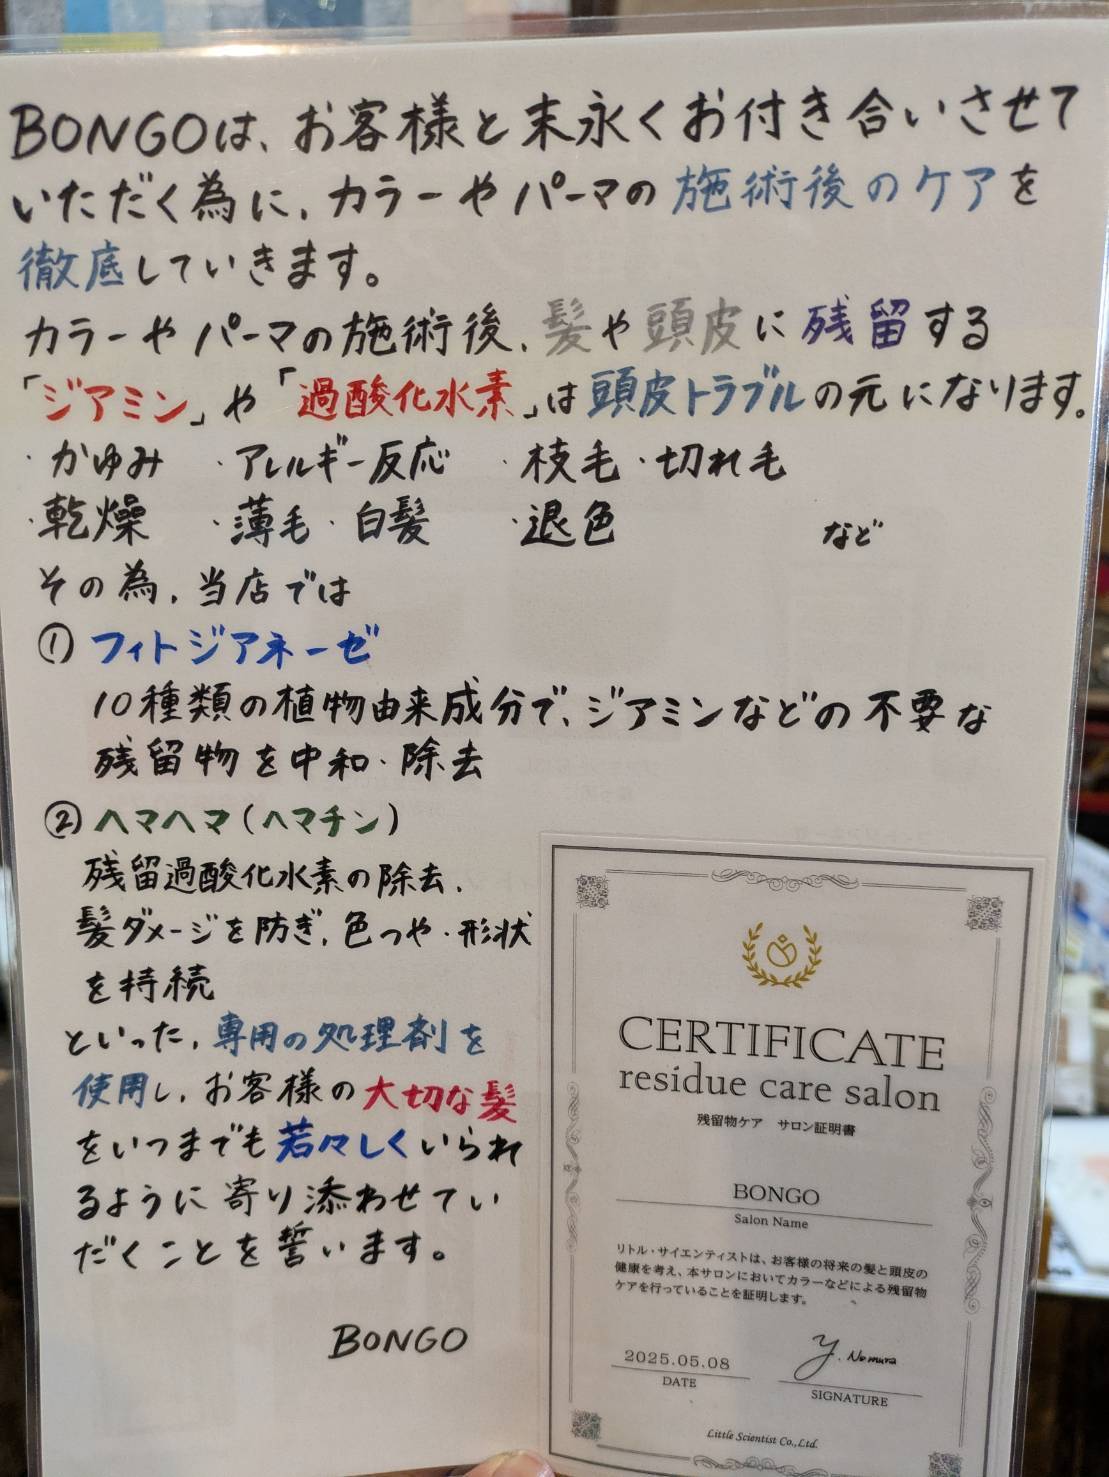 BONGOは、お客様と末永くお付き合いさせて
いただく為に、カラーやパーマの施術後のケアを
徹底していきます。
カラーやパーマの施術後、髪や頭皮に残留する
「ジアミン」や「過酸化水素」は頭皮トラブルの元になります。
・かゆみ ・アレルギー反応 ・枝毛・切れ毛
・乾燥 ・薄毛・白髪 ・退色 など
その為、当店では
① フィトジアネーゼ
10種類の植物由来成分で、ジアミンなどの不要な
残留物を中和・除去
② ヘマヘマ(ヘマチン)
残留過酸化水素の除去、
髪ダメージを防ぎ、色つや・形状
を持続
といった、専用の処理剤を
使用し、お客様の大切な髪
をいつまでも若々しくいられ
るように寄り添わせてい
だくことを誓います。
BONGO
CERTIFICATE
residue care salon
残留物ケア サロン証明書
BONGO
Salon Name
リトル・サイエンティストは、お客様の将来の髪と頭皮の
健康を考え、本サロンにおいてカラーなどによる残留物
ケアを行っていることを証明します。
2025.05.08
DATE
Y. Nomura
SIGNATURE
Little Scientist Co.,Ltd.